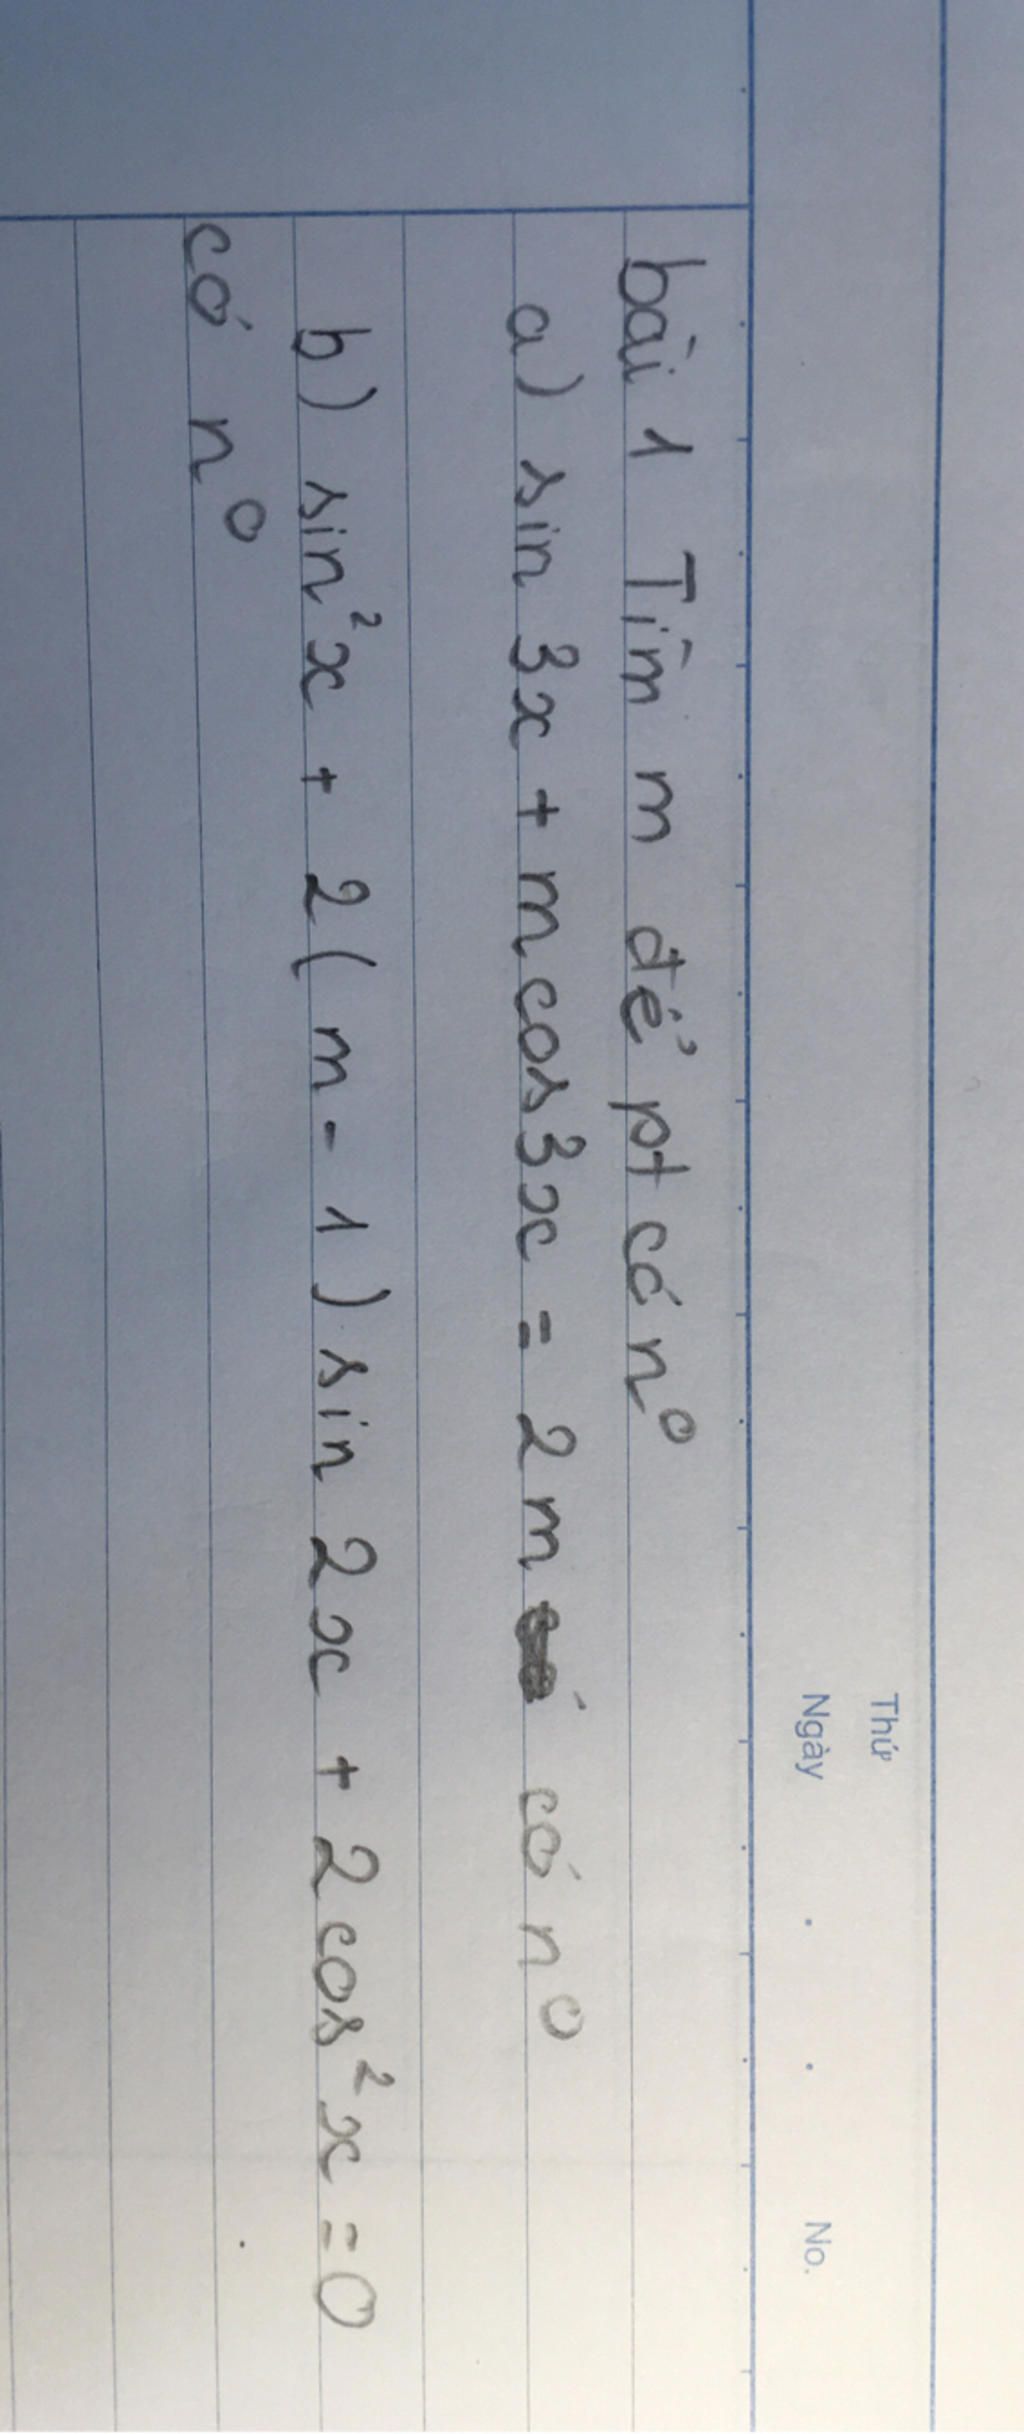 Thứ
Ngày . . No.
bài 1 Tìm m để pt có n⁰
a) sin 3x + m cos3x = 2m có n⁰
b) sin²x + 2(m-1) sin 2x + 2cos²x = 0
có n⁰